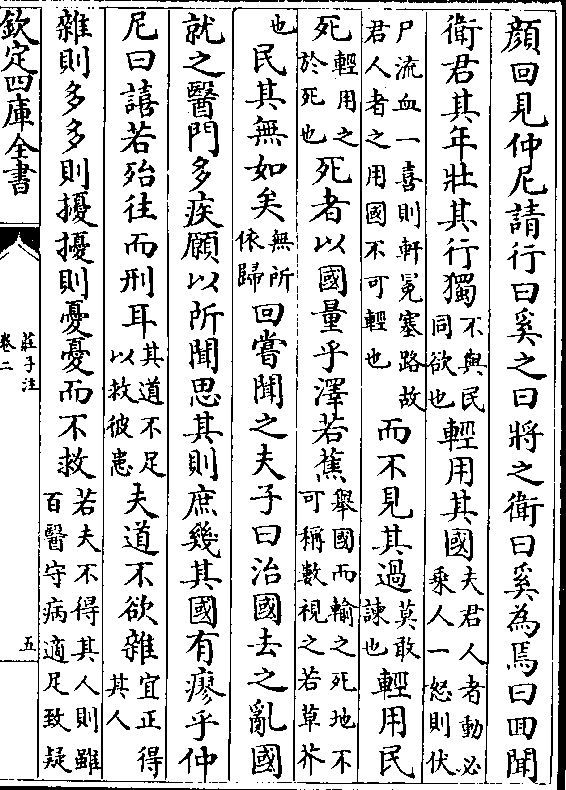 顔回見仲尼請行曰奚之曰將之衛曰奚為焉曰回聞
衛君其年壯其行獨不與民同欲也輕用其國夫君人者動必乘人一怒則伏
尸流血一喜則軒冕塞路故君人者之用國不可輕也而不見其過莫敢諫也輕用民
死輕用之於死也死者以國量乎澤若蕉舉國而輸之死地不可稱數視之若草芥
也民其無如矣無所依歸回嘗聞之夫子曰治國去之亂國
就之醫門多疾願以所聞思其則庶幾其國有瘳乎仲
尼曰譆若殆往而刑耳其道不足以救彼患夫道不欲雜宜正得其人
雜則多多則擾擾則憂憂而不救若夫不得其人則雖百醫守病適足致疑
欽定四庫全書
莊子注
卷二
五